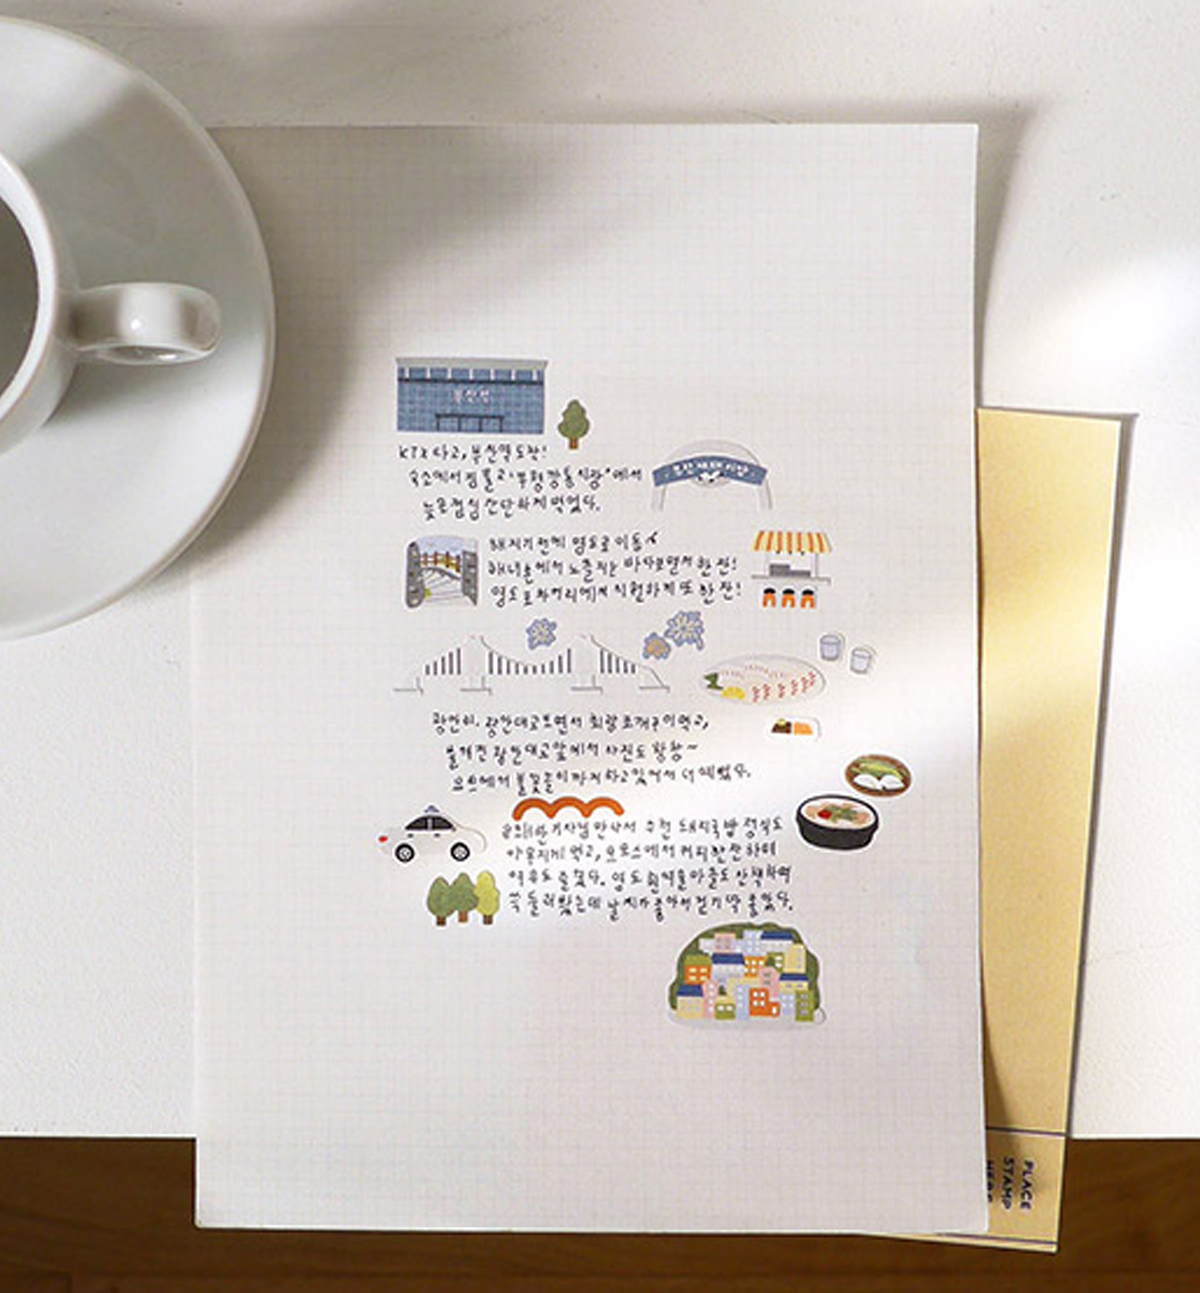 부산역
KTX 타고, 부산역 도착!
숙소에서 짐 풀고 '부평깡통시장'에서
늦은점심 간단하게 먹었다.
해지기 전에 영도로 이동
에서 노을지는 바다보면서 한 잔!
영도포차거리에서 시원하게 또 한 잔!
광안리. 광안대교보면서 회랑 조개구이먹고,
불켜진 광안대교앞에서 사진도 찰칵~
옆에서 불꽃놀이까지 하고있어서 더 예뻤다.
기사님 만나서 추천 돼지국밥 정식도
야무지게 먹고, 에서 커피한잔하며
여유도 즐겼다. 영도 흰여울마을도 산책하며
쭉 둘러봤는데 날씨가 좋아서 걷기 딱 좋았다.
PLACE
STAMP
HERE